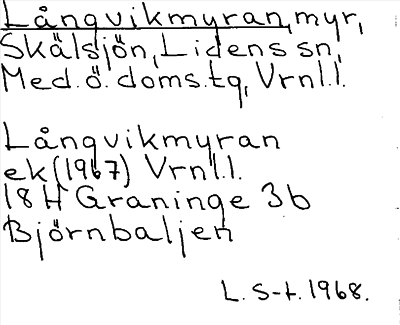 Långvikmyran, myr,
Skälsjön, Lidens sn,
Med. ö. doms.tg, Vrnl.l.
Långvikmyran
ek (1967) Vrnl.l.
18H Graninge 3b
Björnbaljen
L. S-t. 1968.